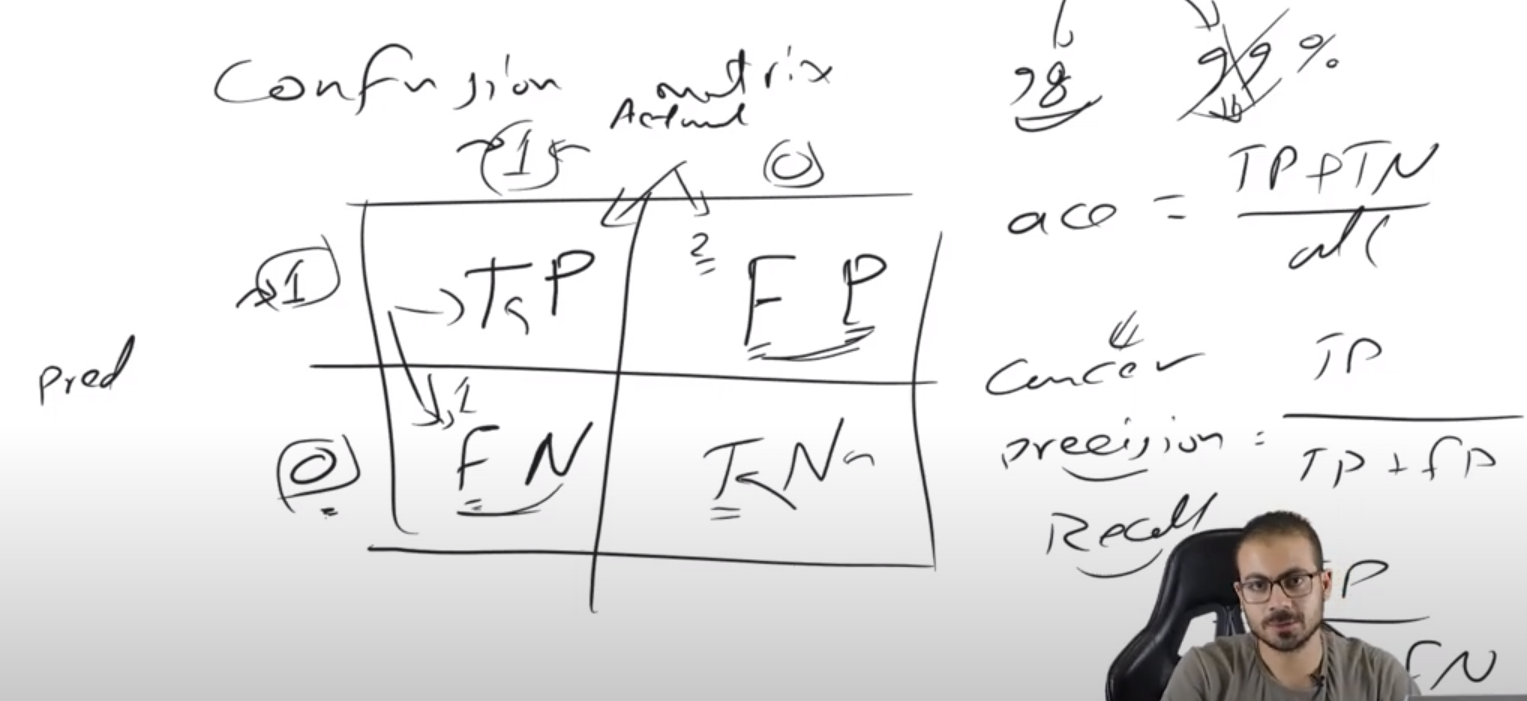 Confusion matrix
Actual
1 0
1 TP 2 FP
pred
0 1 FN TN
98 99%
acc = TP+TN
all
Cancer
precision = TP
TP + FP
Recall
P
FN